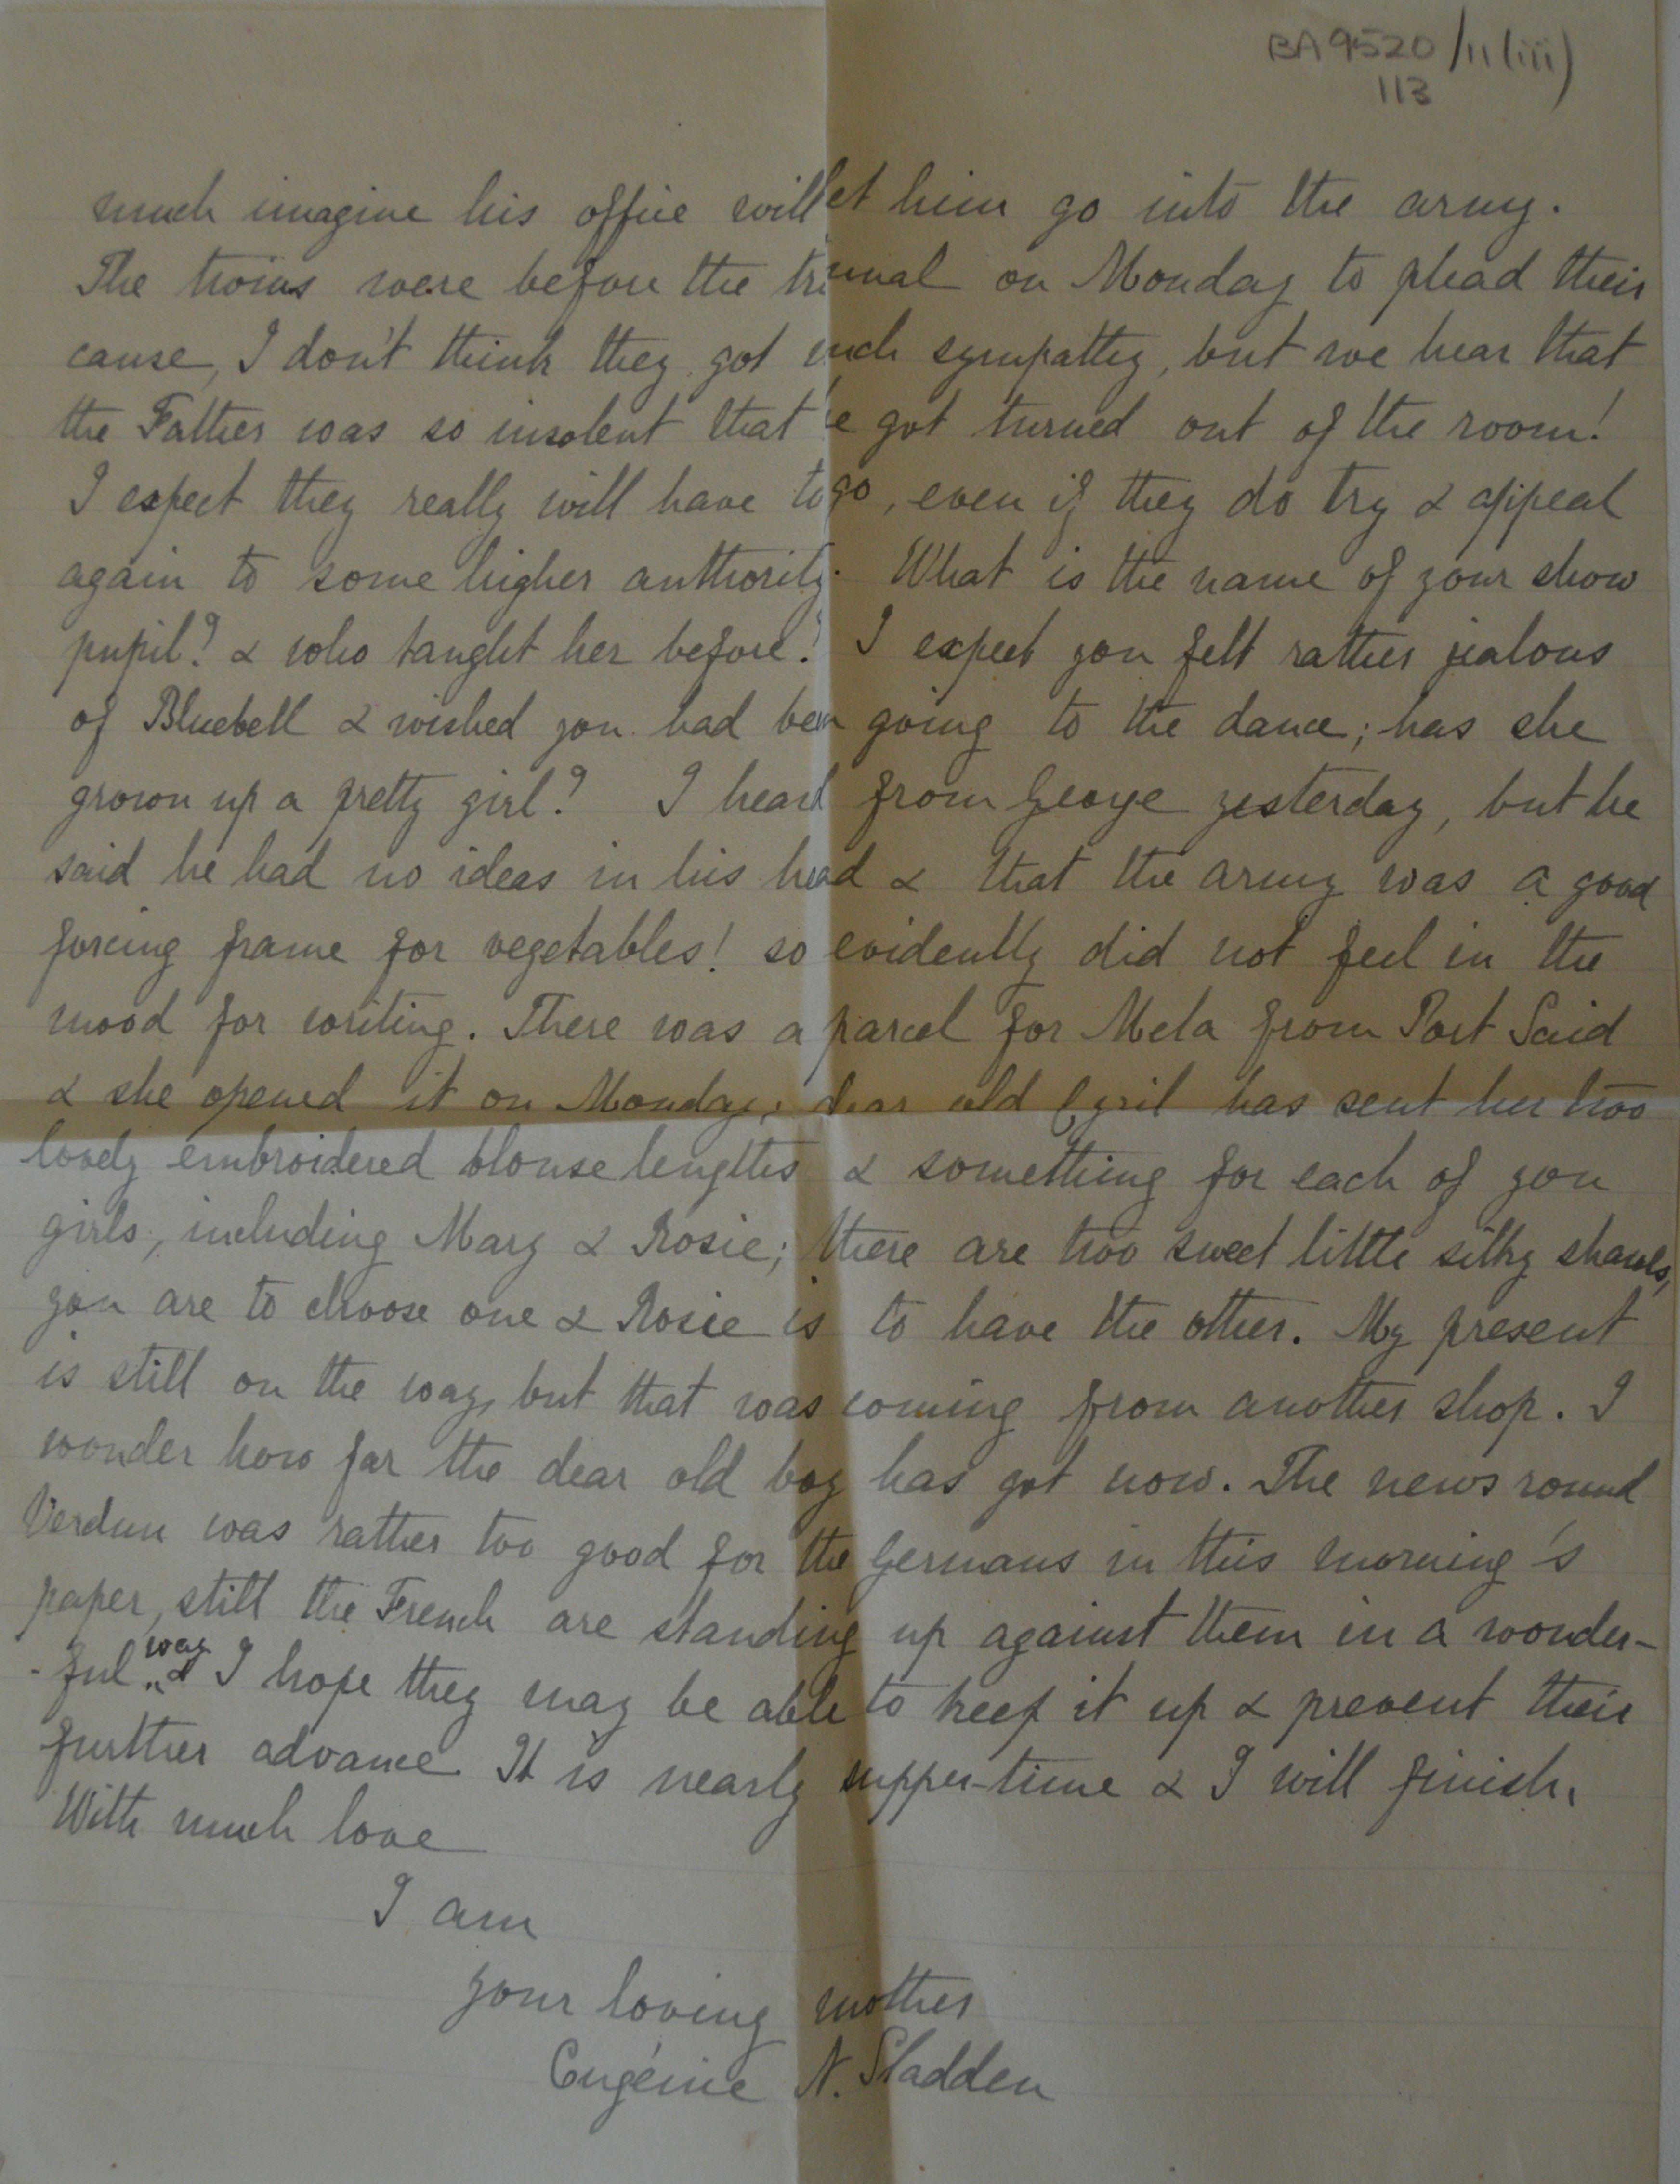 BA9520/11(iii)
113
much imagine his office will let him go into the army.
The twins were before the tribunal on Monday to plead their
cause, I don't think they got much sympathy, but we hear that
the Father was so insolent that he got turned out of the room!
I expect they really will have to go, even if they do try & appeal
again to some higher authority. What is the name of your show
pupil? & who taught her before? I expect you felt rather jealous
of Bluebell & wished you had been going to the dance; has she
grown up a pretty girl? I heard from George yesterday, but he
said he had no ideas in his head & that the army was a good
forcing frame for vegetables! so evidently did not feel in the
mood for writing. There was a parcel for Mela from Port Said
& she opened it on Monday; dear old Cyril has sent her two
lovely embroidered blouse lengths & something for each of you
girls, including Mary & Rosie; there are two sweet little silky shawls,
you are to choose one & Rosie is to have the other. My present
is still on the way, but that was coming from another shop. I
wonder how far the dear old boy has got now. The news round
Verdun was rather too good for the Germans in this morning's
paper, still the French are standing up against them in a wonder-
-ful way & I hope they may be able to keep it up & prevent their
further advance. It is nearly supper-time & I will finish.
With much love
I am
your loving mother
Eugénie N. Sladden